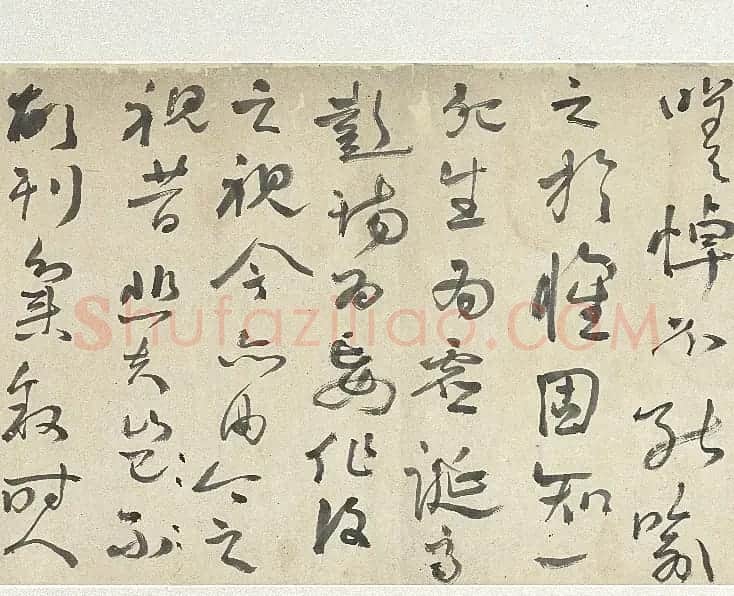 嗟悼不能喻
之於懷固知一
死生為虛誕齊
彭殤為妄作後
之視今亦由今之
視昔悲夫
故列敘時人
Shufaziliao.COM